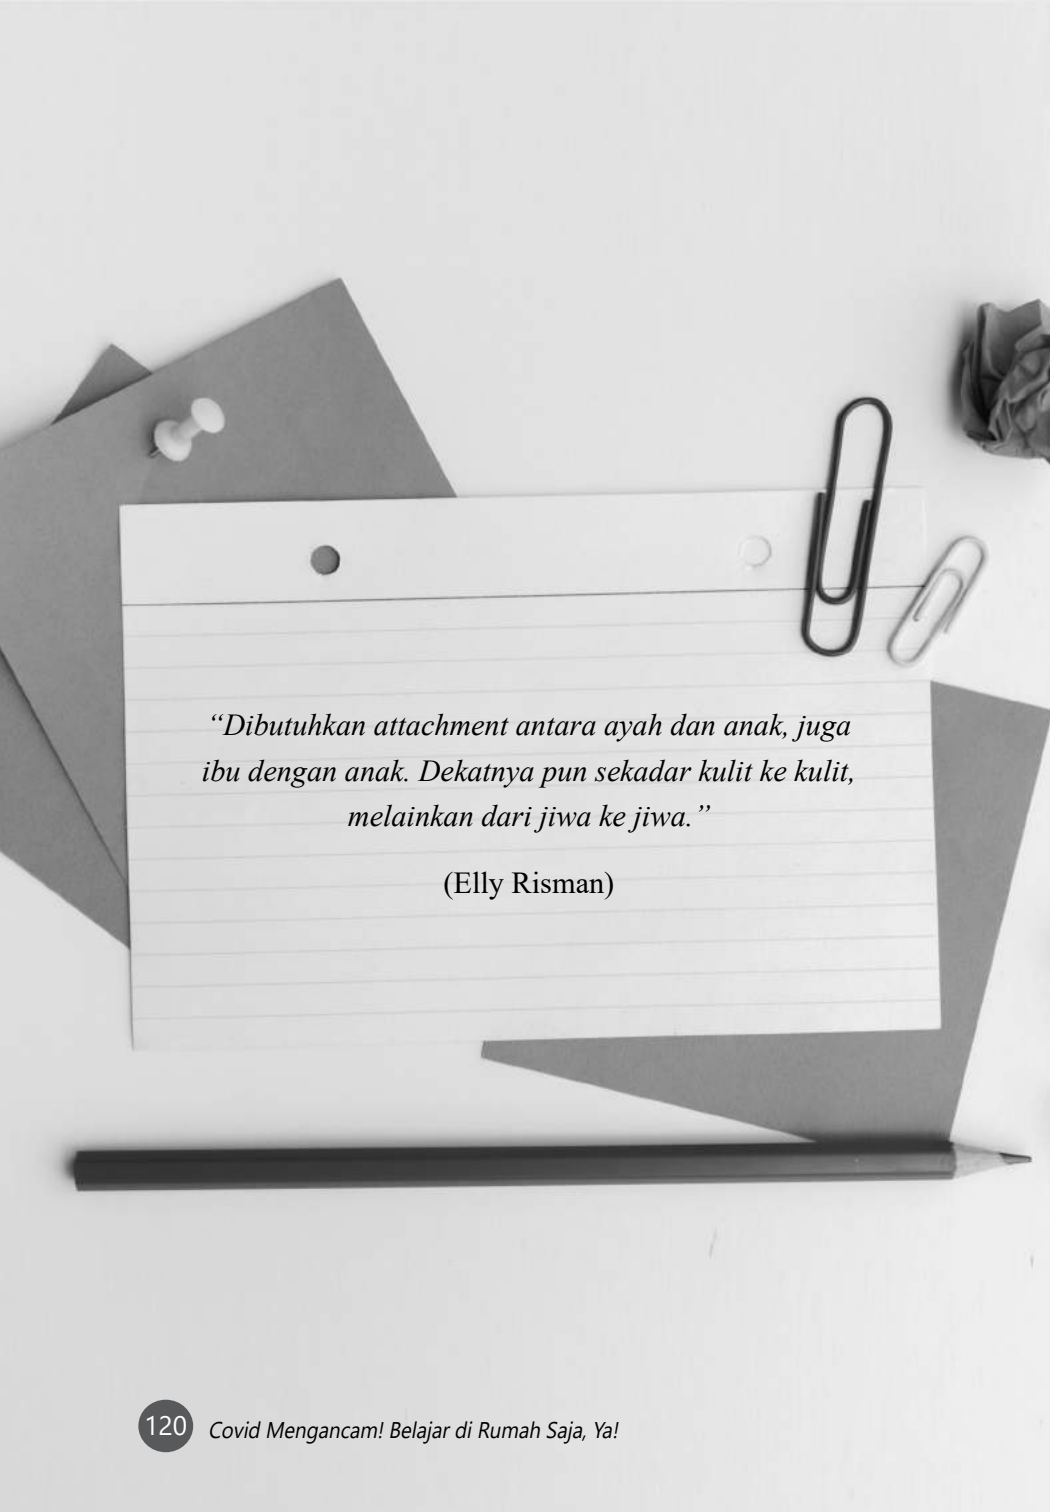 “Dibutuhkan attachment antara ayah dan anak, juga
ibu dengan anak. Dekatnya pun sekadar kulit ke kulit,
melainkan dari jiwa ke jiwa.”
(Elly Risman)
120 Covid Mengancam! Belajar di Rumah Saja, Ya!